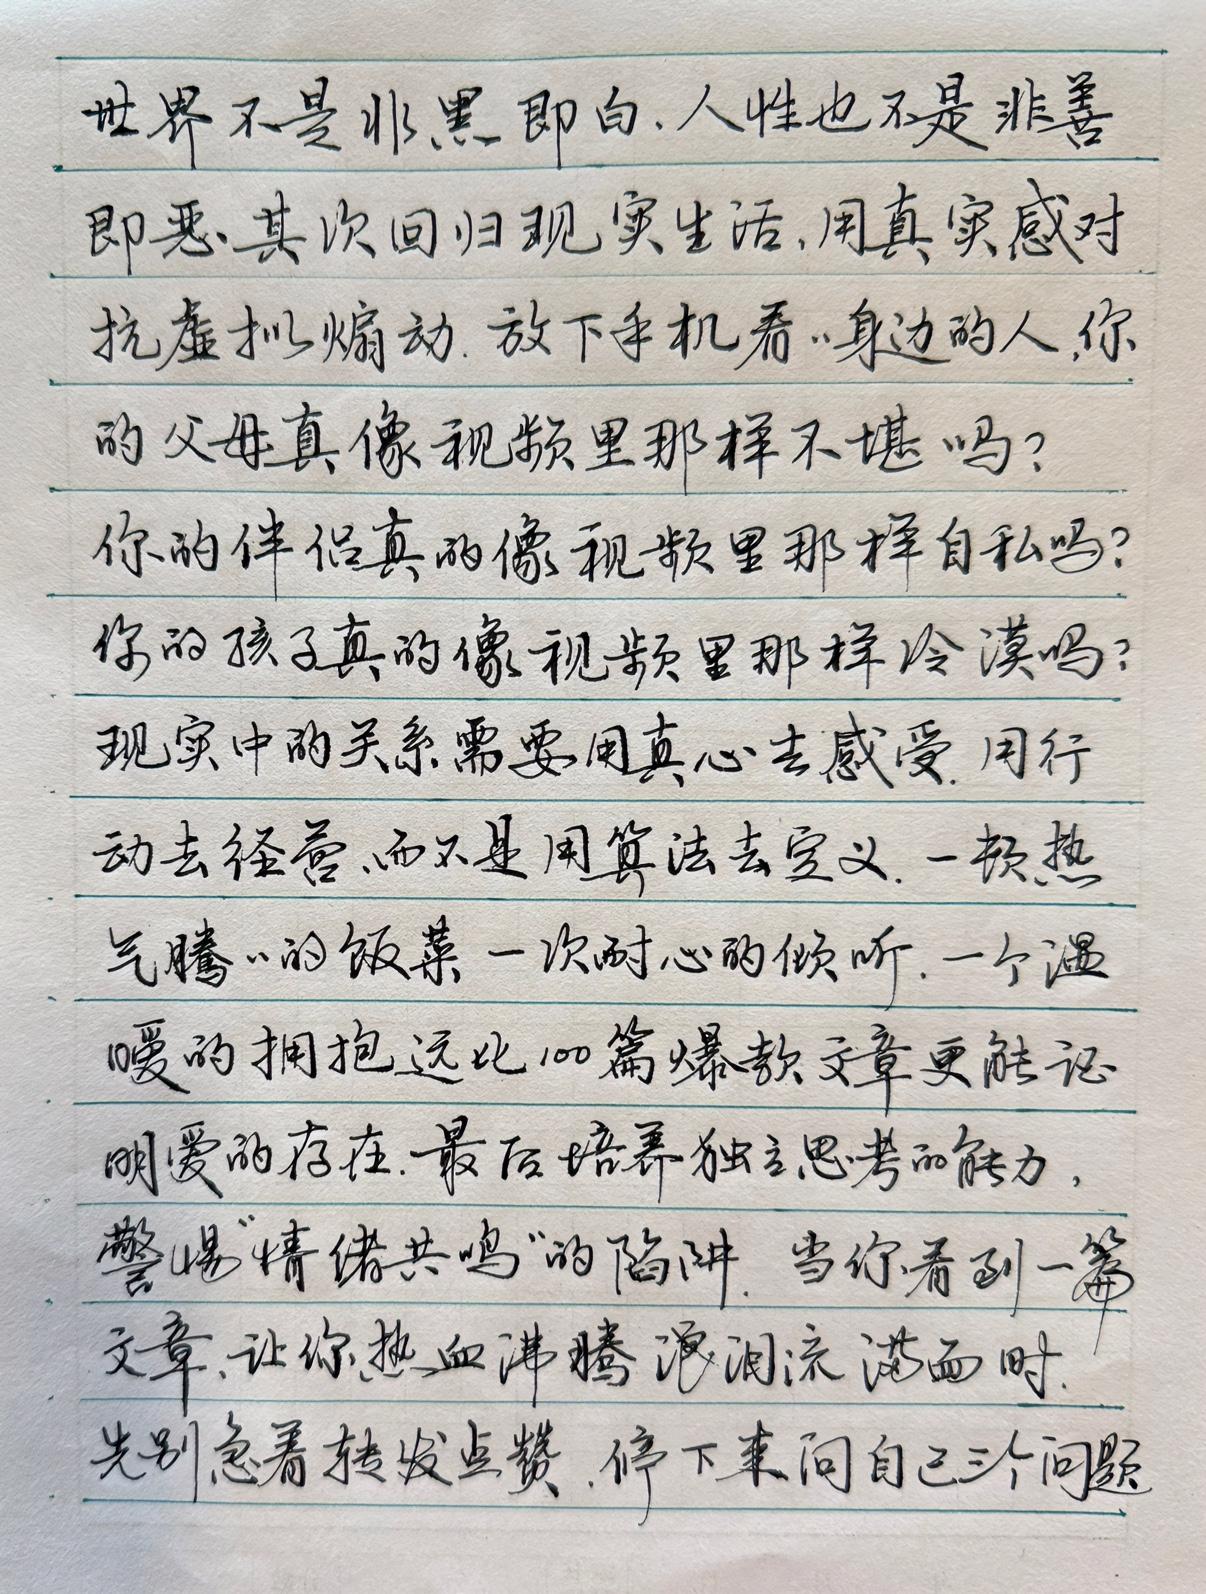 世界不是非黑即白、人性也不是非善
即恶、其次回归现实生活、用真实感对
抗虚拟煽动.放下手机看〃身边的人,你
的父母真像视频里那样不堪吗?
你的伴侣真的像视频里那样自私吗?
你的孩子真的像视频里那样冷漠吗?
现实中的关系需要用真心去感受.用行
动去经营、而不是用算法去定义.一顿热
气腾〃的饭菜一次耐心的倾听.一个温
暖的拥抱远比100篇爆款文章更能证
明爱的存在.最后培养独立思考的能力,
警惕"情绪共鸣"的陷阱.当你看到一篇
文章、让你热血沸腾泪流满面时.
先别急着转发点赞.停下来问自己三个问题